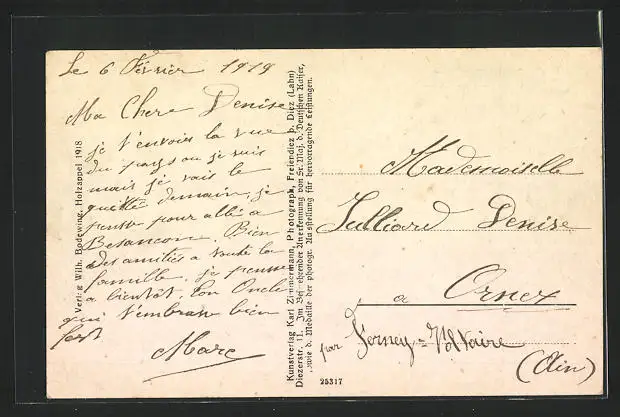 Le 6 Février 1919
Ma Chere Denise
je t'envois la vue
du pays ou je suis
mais je vais le
quitté demain, je
pense pour allé a
Besancon. Bien
des amitiés a toute la
famille. je pense
a bientôt. Ton Oncle
qui t'embrasse bien
fort
Marc
Verlag Wilh. Bodewing, Holzappel 1918
Kunstverlag Karl Zimmermann, Photograph, Freiendiez b. Diez (Lahn)
Diezerstr. 11. Im Besitz ehrender Anerkennung von Sr. Maj. d. Deutschen Kaiser,
sowie d. Medaille der photogr. Ausstellung für hervorragende Leistungen.
25317
Mademoiselle
Julliard Denise
a Ornex
par Ferney-Voltaire
(Ain)